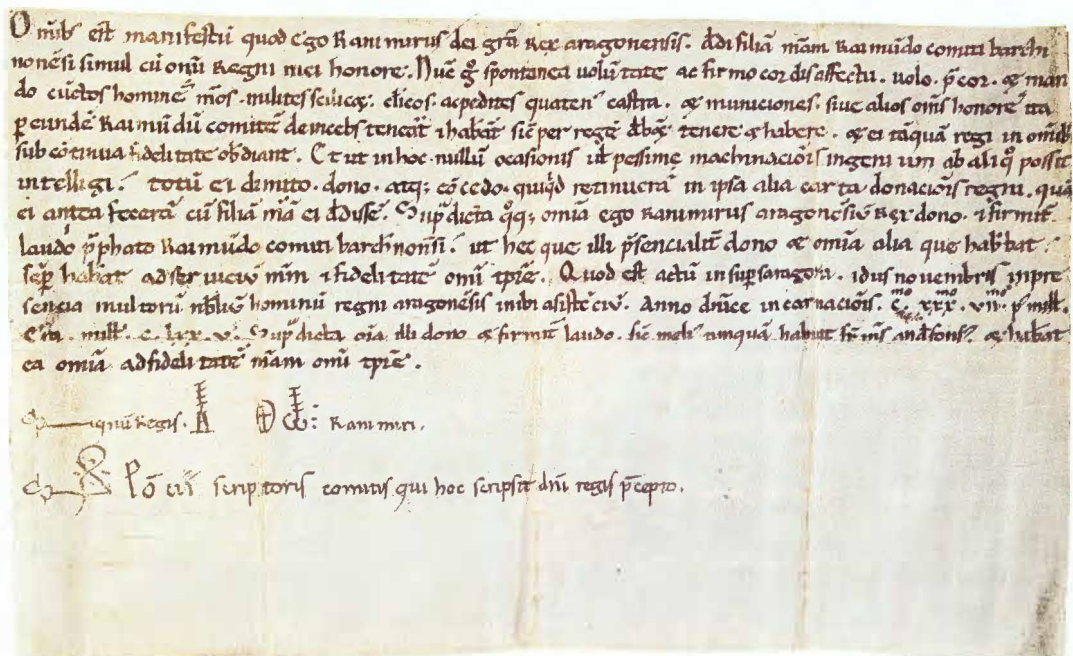 Omib; est manifestū quod ego Ranimirus dei grā Rex aragonensis. dedi filiā mēam Raimūdo comiti barchi
nonēsi simul cū omī Regni mei honore. Nūc g̊ spontanea volūtate ac firmo cordis affectu. volo. p̄cor. & man
do cūctos homines mēos. milites scilicet. clicos. ac pedites quaten' castra. & municiones. sive alios omīs honores ita
p eundē Raimūdū comitē deinceps teneāt & habeāt sic̄ per regē debēt tenere & habere. & ei tāquā regi in omīb;
sub cōtinua fidelitate obediant. Et ut in hoc nullū ocasionis ul̄ pessime machinaciōis ingenium ab aliq̊ possit
intelligi. totū ei dimito. dono. atq; cōcedo. quiq̊d retinuerā in ipsa alia carta donaciōis regni. quā
ei antea fecerā cū filiā mēā ei dedissē. Sup̄dicta q̊q; omīa ego Ranimirus aragonēsiū Rex dono. & firmit̄
laudo p̄phato Raimūdo comiti barchinonēsi. ut hec que illi p̄sencialit̄ dono & omīa alia que habebat
sēp̄ habeat ad servicium mēum & fidelitatē omī tp̄re. Quod est actū in sup̄ saragoza. idus novembris in pre
sencia multorū nobiliū hominū regni aragonēsis inibi asistēciū. Anno dn̄ice incarnaciōis. Cmo. xxxmo. viimo. p' mill'.
Era. mill'. c. lxx. v. Sup̄dicta oīa illi dono & firmit̄ laudo. sic̄ meli' unquā habuit fr̄ mēus andefonsus. & habeāt
ea omīa ad fidelitatē mēam omī tp̄re.
Signū Regis. Ranimiri.
S Poncii scriptoris comitis qui hoc scripsit dn̄i regis p̄cepto.